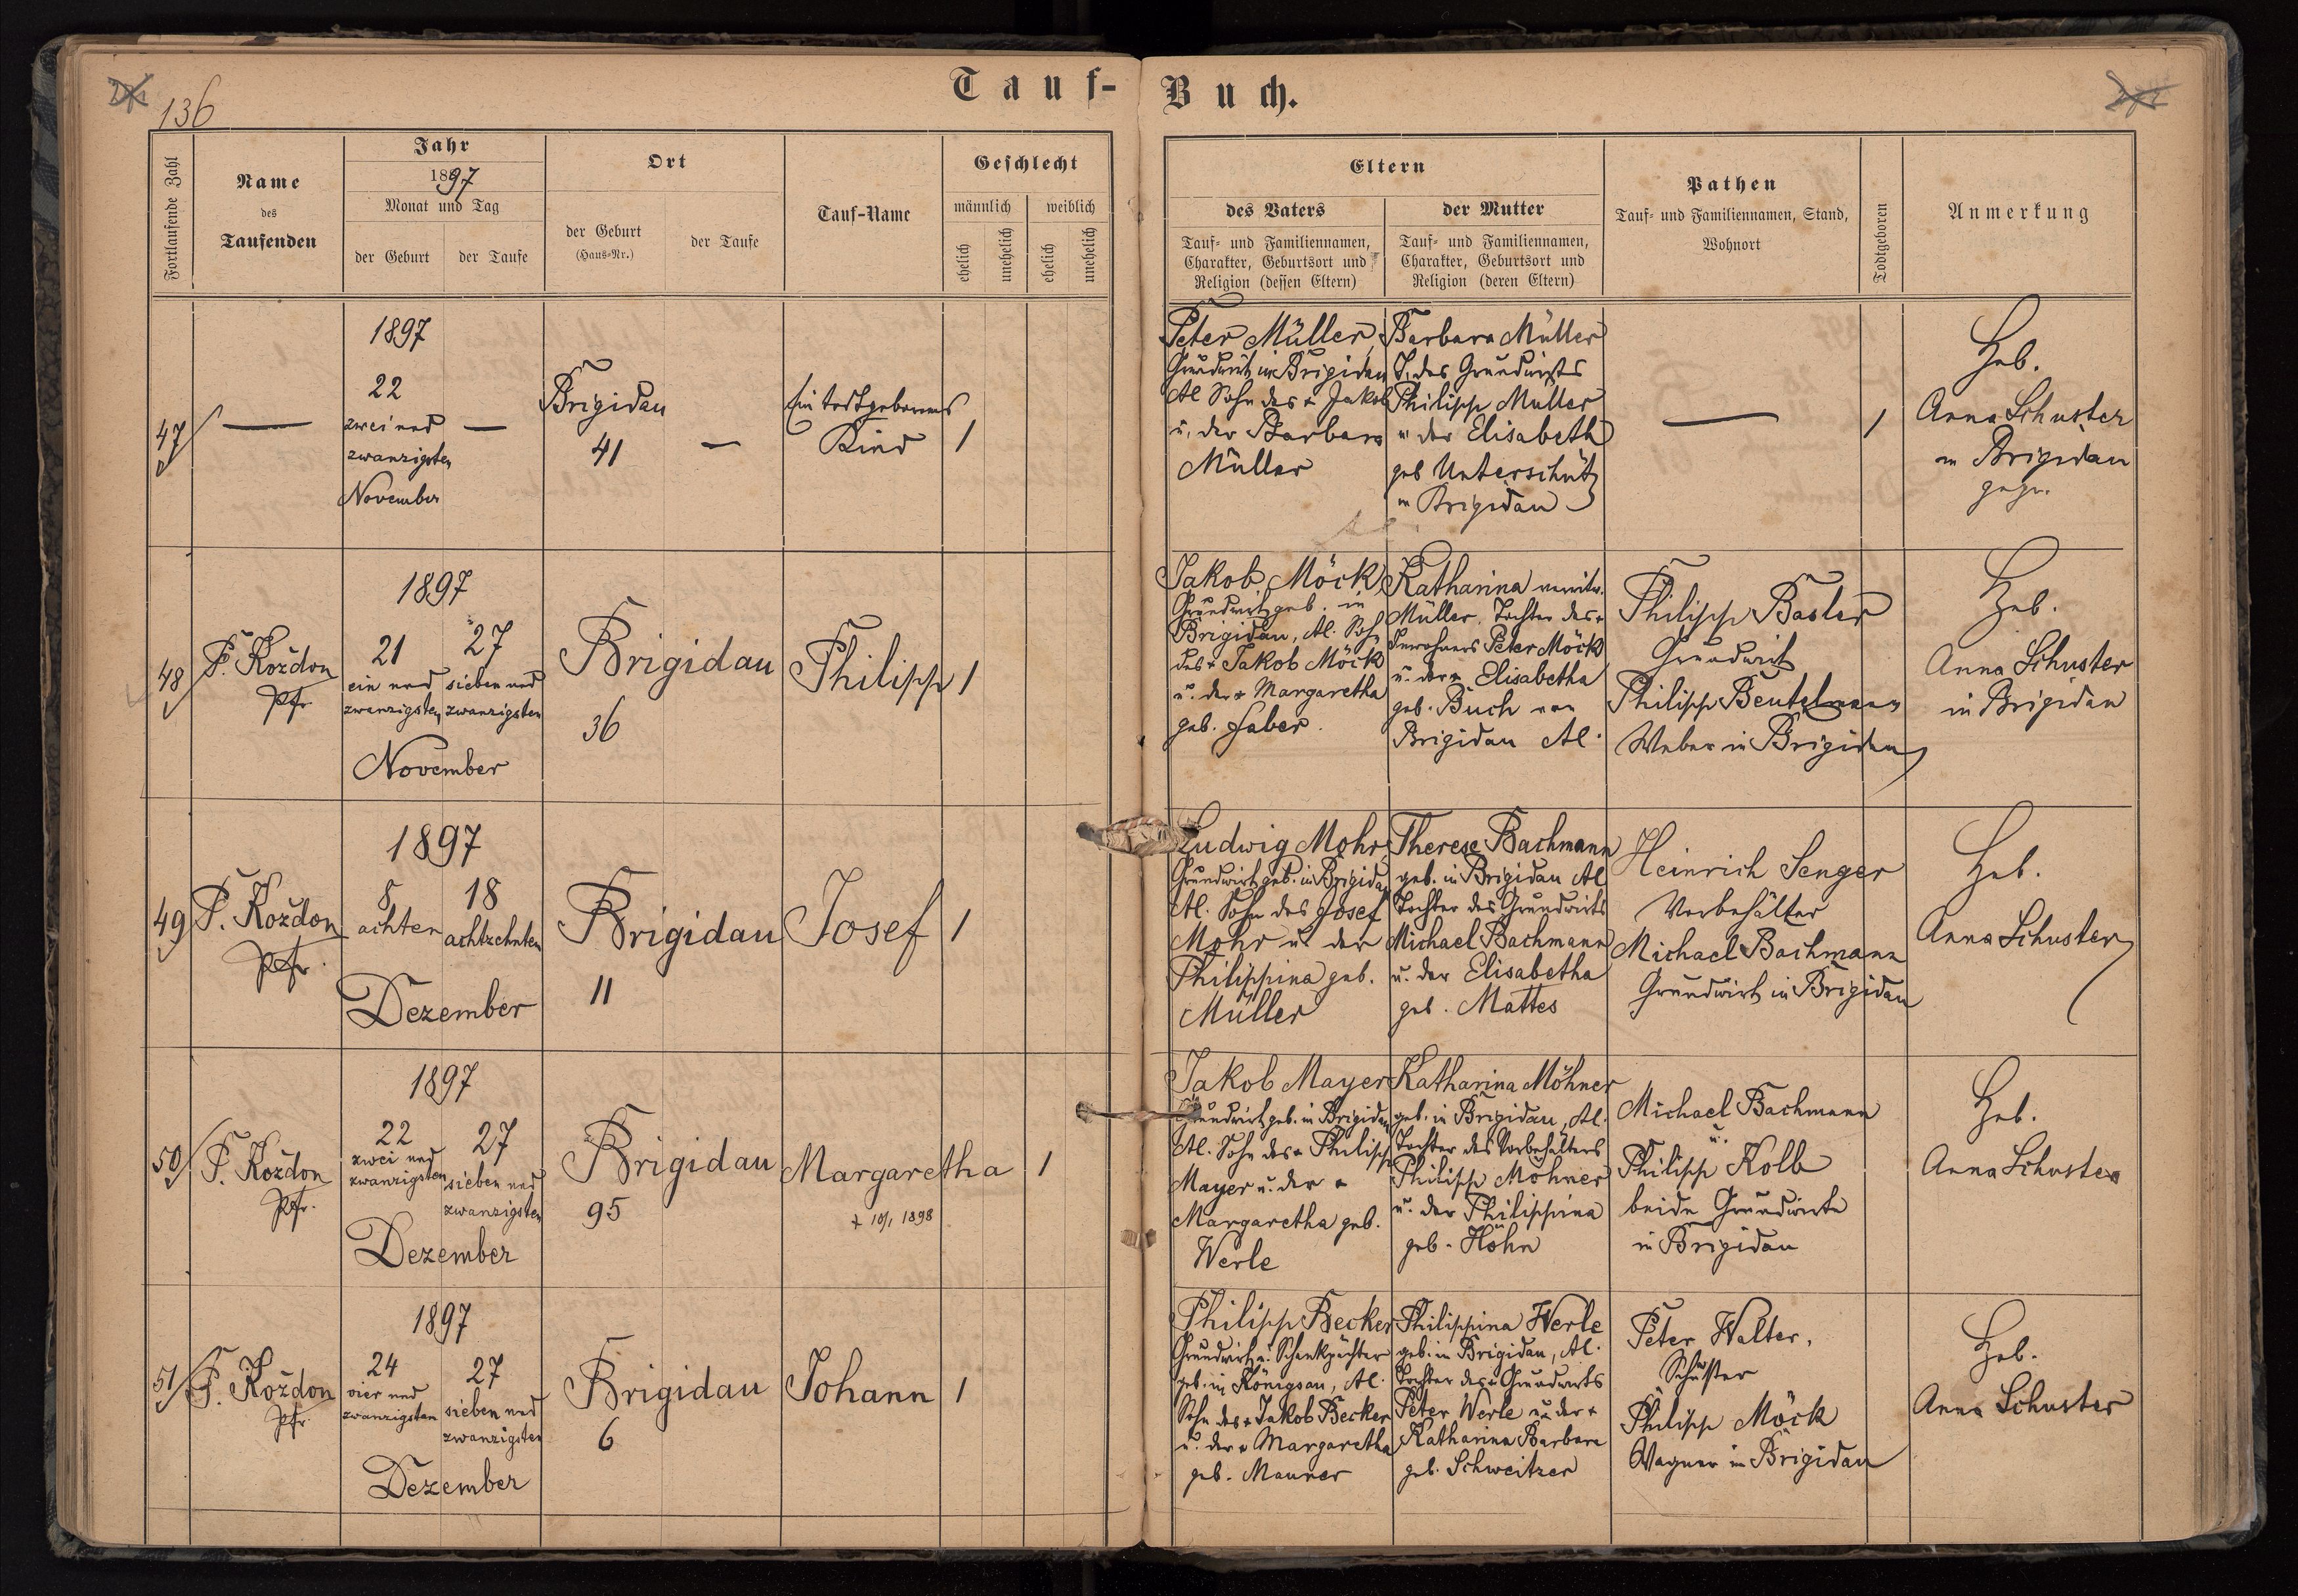 136
Tauf-Buch.
Fortlaufende Zahl
Name
des
Taufenden
Jahr
1897
Monat und Tag
der Geburt
der Taufe
Ort
der Geburt
(Haus-Nr.)
der Taufe
Tauf-Name
Geschlecht
männlich
weiblich
ehelich
unehelich
ehelich
unehelich
Eltern
des Vaters
Tauf- und Familiennamen,
Charakter, Geburtsort und
Religion (dessen Eltern)
der Mutter
Tauf- und Familiennamen,
Charakter, Geburtsort und
Religion (deren Eltern)
Pathen
Tauf- und Familiennamen, Stand,
Wohnort
Todtgeboren
Anmerkung
47
—
1897
22
zwei und
zwanzigsten
November
—
Brigidau
41
—
Ein todtgeborenes
Kind
1
Peter Müller,
Grundwirt in Brigidau
Al Sohn des + Jakob
u. der Barbara
Müller
Barbara Müller
T. des Grundwirts
Philipp Müller
u der Elisabeth
geb Unterschütz
in Brigidau
—
1
Heb.
Anna Schuster
in Brigidau
48
F. Koždon
Pfr.
1897
21
ein und
zwanzigsten
27
sieben und
zwanzigsten
November
Brigidau
36
Philipp
1
Jakob Möck
Grundwirt, geb. in
Brigidau, Al. Sohn
des + Jakob Möck
u. der + Margaretha
geb. Faber.
Katharina verwitw.
Müller, Tochter des +
Inwohners Peter Möck
u. der + Elisabetha
geb. Buch von
Brigidau Al.
Philipp Basler
Grundwirt
Philipp Beutelmann
Weber in Brigidau
Heb.
Anna Schuster
in Brigidau
49
F. Koždon
Pfr.
1897
8
achten
18
achtzehnten
Dezember
Brigidau
11
Josef
1
Ludwig Mohr,
Grundwirt, geb. in Brigidau
Al. Sohn des Josef
Mohr u. der
Philippina geb.
Müller
Therese Bachmann
geb. in Brigidau Al
Tochter des Grundwirts
Michael Bachmann
u. der Elisabetha
geb. Mattes
Heinrich Senger
Vorbehälter
Michael Bachmann
Grundwirt in Brigidau
Heb.
Anna Schuster
50
F. Koždon
Pfr.
1897
22
zwei und
zwanzigsten
27
sieben und
zwanzigsten
Dezember
Brigidau
95
Margaretha
+ 10/1 1898
1
Jakob Mayer
Grundwirt, geb. in Brigidau
Al. Sohn des + Philipp
Mayer u. der +
Margaretha geb.
Werle
Katharina Möhner
geb. in Brigidau, Al.
Tochter des Vorbehälters
Philipp Möhner
u. der Philippina
geb. Höhn
Michael Bachmann
u.
Philipp Kolb
beide Grundwirte
in Brigidau
Heb.
Anna Schuster
51
F. Koždon
Pfr.
1897
24
vier und
zwanzigsten
27
sieben und
zwanzigsten
Dezember
Brigidau
6
Johann
1
Philipp Becker
Grundwirt u. Schenkpächter
geb. in Königsau, Al.
Sohn des + Jakob Becker
u. der + Margaretha
geb. Maurer
Philippina Werle
geb. in Brigidau, Al.
Tochter des + Grundwirts
Peter Werle u. der +
Katharina Barbara
geb. Schweitzer
Peter Walter,
Schuster
Philipp Möck
Wagner in Brigidau
Heb.
Anna Schuster